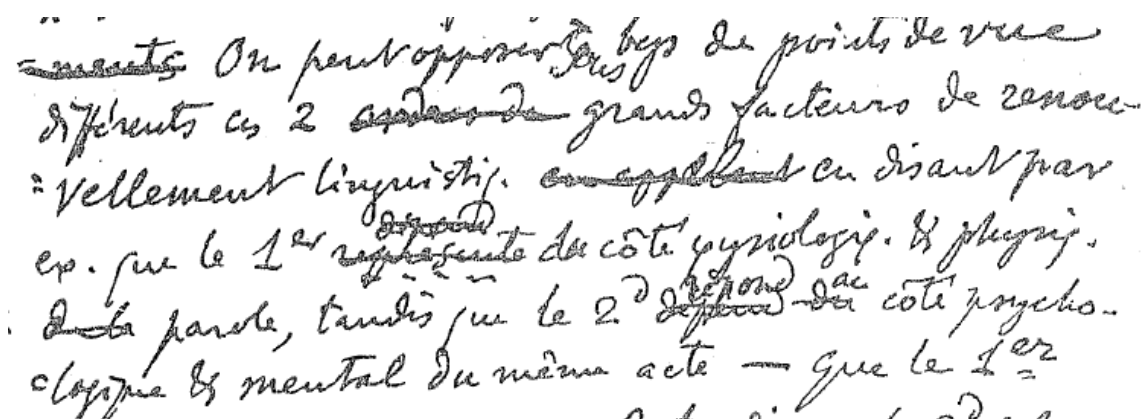 =ments On peut opposer sous bcp de points de vue
différents ces 2 ordres de grands facteurs de renou-
=vellement linguistiq. en appelant en disant par
ex. que le 1er représente du côté physiologiq. & physiq.
de la parole, tandis que le 2d répond au côté psycho-
=logique & mental du même acte — que le 1er